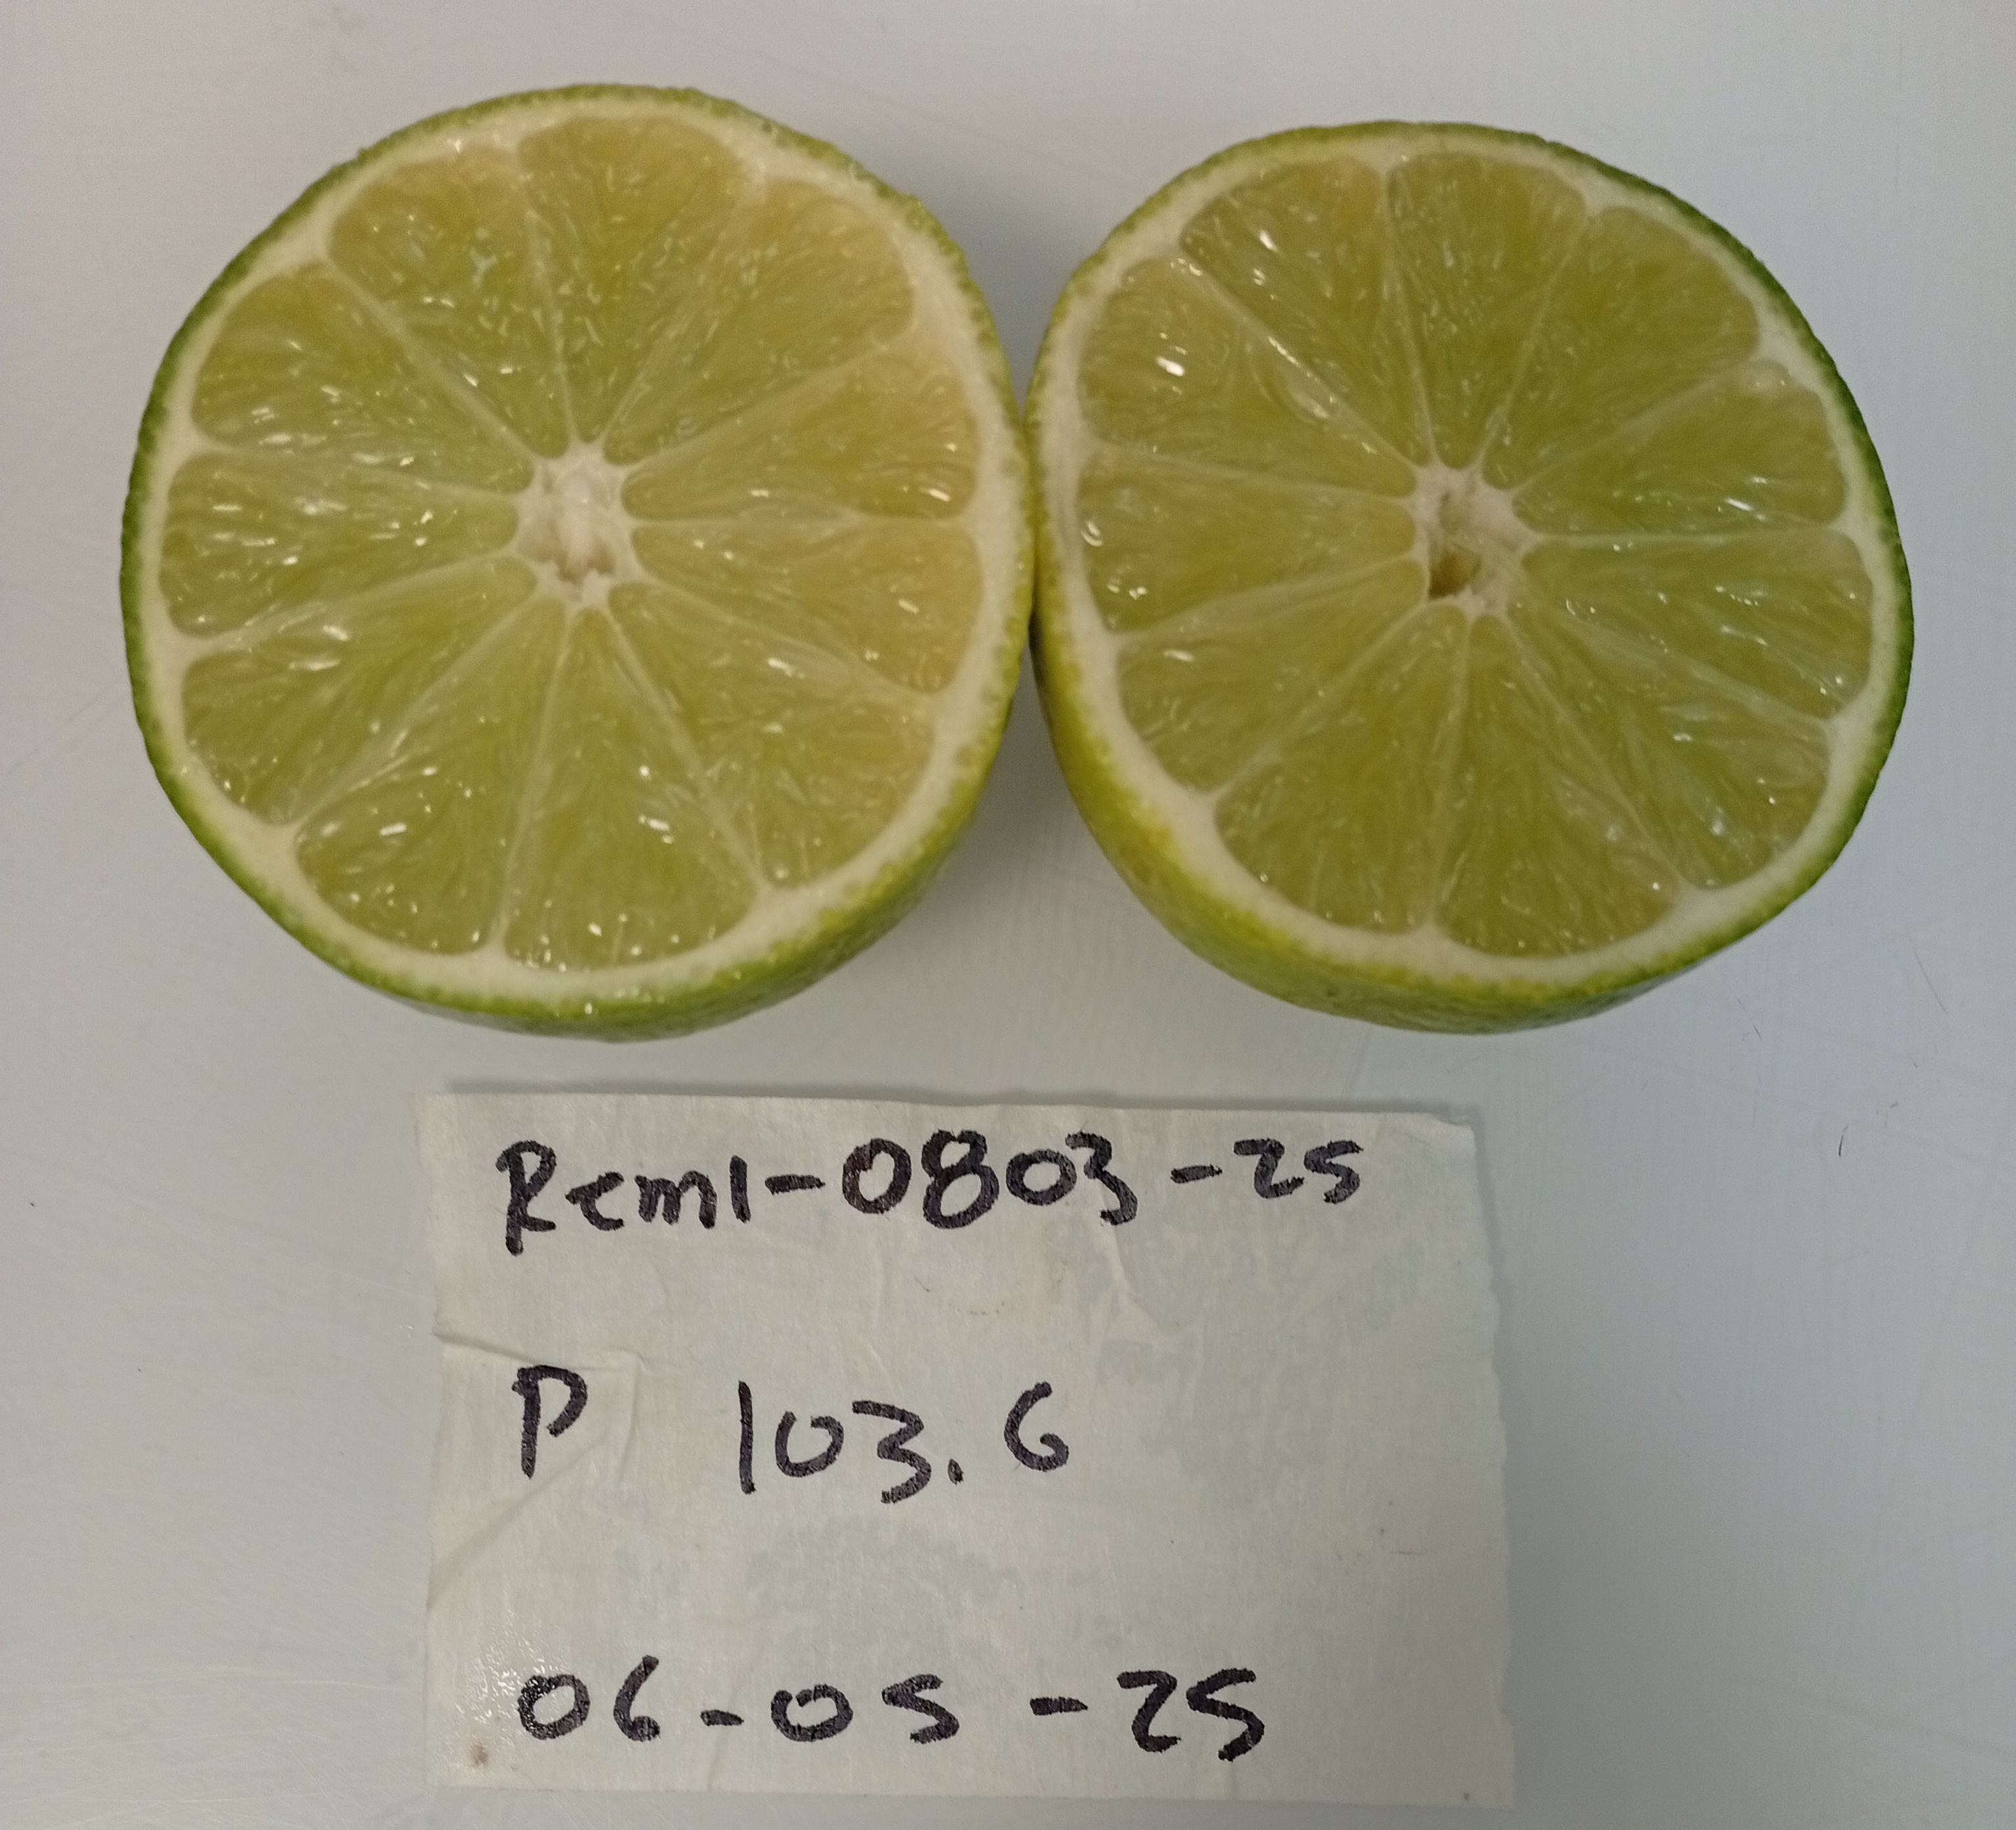 Rem1-0803-25
P 103.6
06-05-25